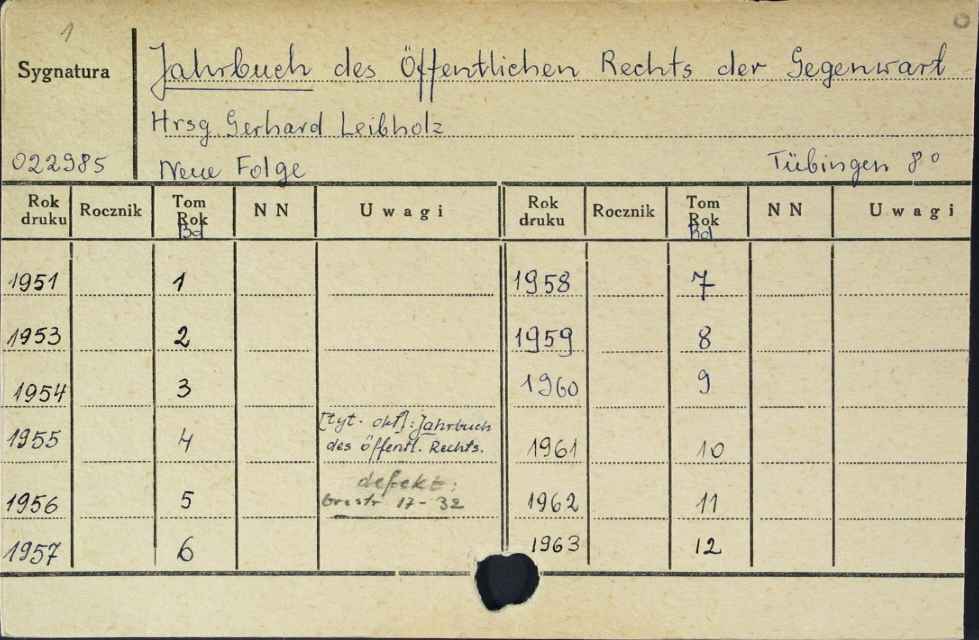 1
Sygnatura
Jahrbuch des Öffentlichen Rechts der Gegenwart
Hrsg. Gerhard Leibholz
022985
Neue Folge Tübingen 8°
Rok druku Rocznik Tom Rok Bd N N Uwagi Rok druku Rocznik Tom Rok Bd N N Uwagi
1951 1 1958 7
1953 2 1959 8
1954 3 1960 9
1955 4 [tyt. okł]: Jahrbuch des öffentl. Rechts. 1961 10
1956 5 defekt: brastr 17-32 1962 11
1957 6 1963 12